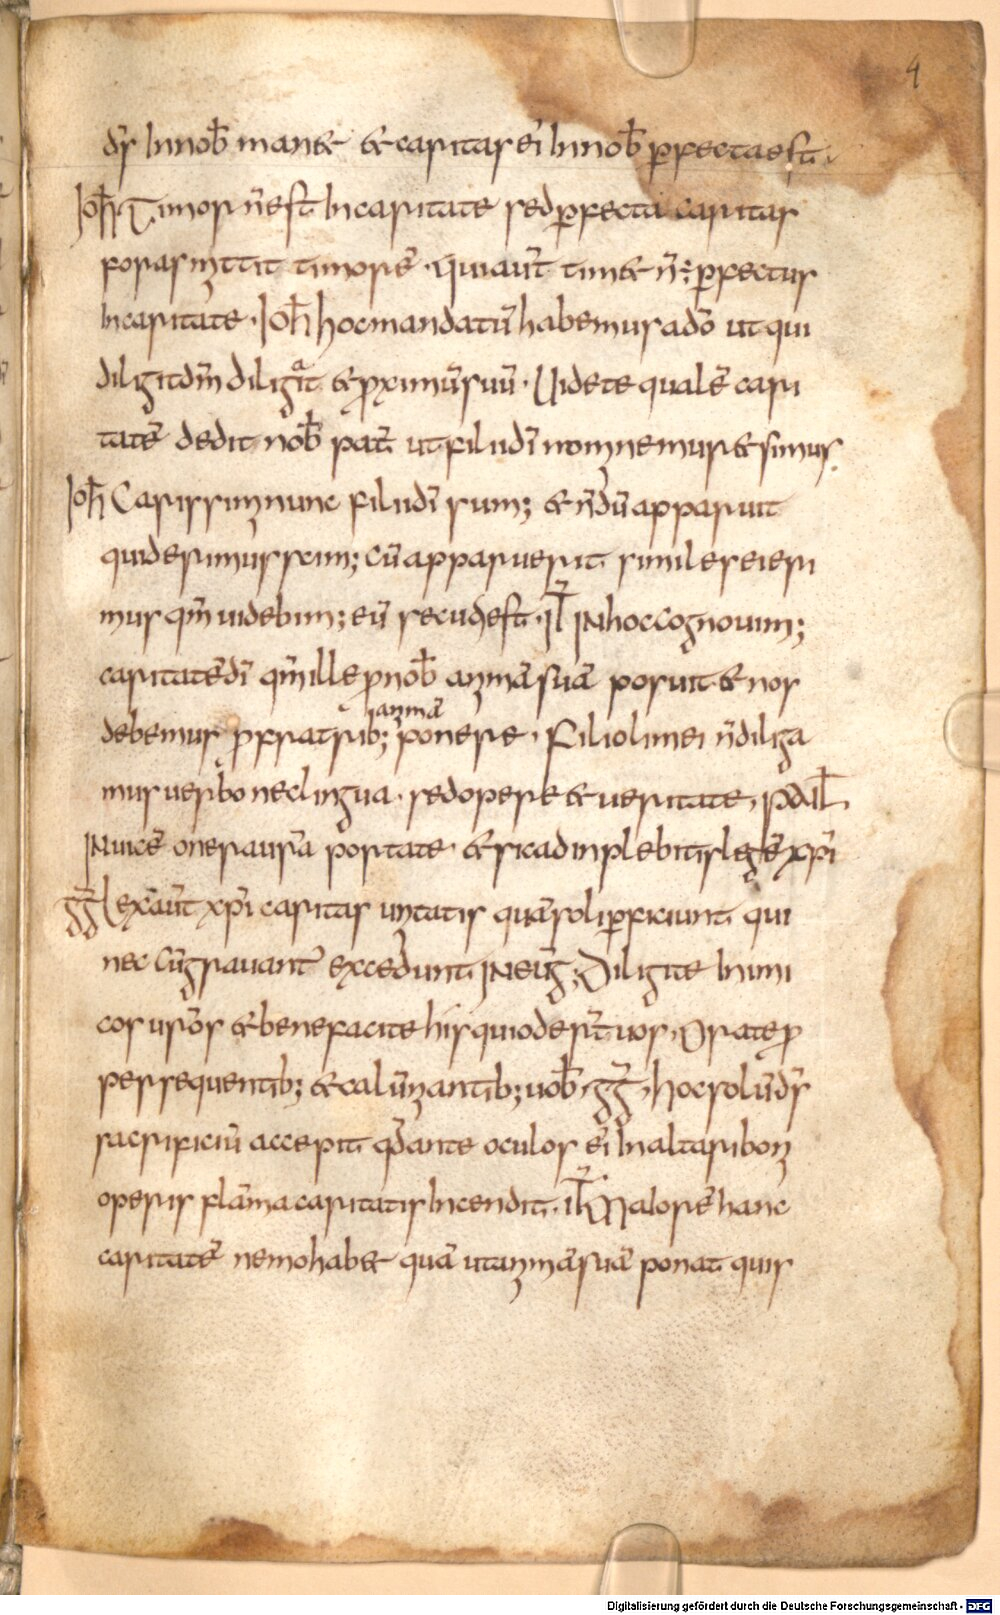 4
d̄s In nob̄ man& & caritas ei̅ In nob̄ ꝑfecta est.
Ioh̄ Timor n̄ est In caritate sed ꝑfecta caritas
foras mittit timore̅. Qui aut̄ tim& n̄ ÷ ꝑfectus
In caritate. Ioh̄ hoc mandatu̅ habemus a do̅ ut qui
diligit dm̅ diligat & ꝓximu̅ suu̅. Uidete quale̅ cari
tate̅ dedit nob̄ pat̄ ut filii di̅ nominemur & simus.
Ioh̄ Carissimi nunc filii di̅ sum; & n̄du̅ apparuit
quid erimus scim; cu̅ apparuerit similes ei eri
mus qm̅ uidebim; eu̅ secuti est. it̄ IN hoc cognouim;
caritate̅ di̅ qm̅ ille ꝓ nob̄ anima̅ sua̅ posuit & nos
debemus ꝓ fratrib; anima̅ ponere. Filioli mei n̄ diliga
mus uerbo nec lingua. sed opere & ueritate,
INuice̅ onera ur̅a portate & sic adinplebitis lege̅ xp̅i
gḡ Lex aut̄ xp̅i caritas unitatis qua̅ soli ꝑficiunt qui
nec cu̅ grauant̄ excedunt IN eug̅; Diligite Inimi
cos ur̅os & benefacite his qui oder̅t uos, Orate ꝓ
persequentib; & calu̅niantib; uob̄, gḡ, hoc solu̅ d̄s
sacrificiu̅ accepit qd̅ ante oculos ei̅ In altari boni
operis fla̅ma caritatis Incendit. it̄ Maiore̅ hanc
caritate̅ nemo hab& qua̅ ut anima̅ sua̅ ponat quis
Digitalisierung gefördert durch die Deutsche Forschungsgemeinschaft - DFG